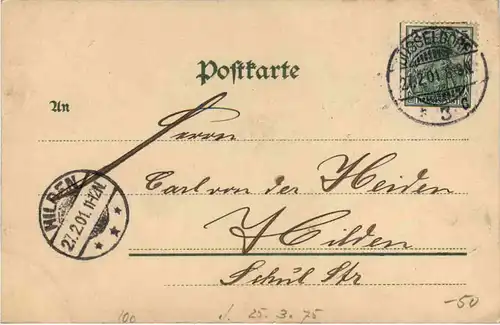 Postkarte
DÜSSELDORF
27.2.01.
* 3 c
An
Herrn
Carl von der Heiden
HILDEN
27.2.01. 11-12N.
Hilden
Schul Str
100
d. 25. 3. 75
-50